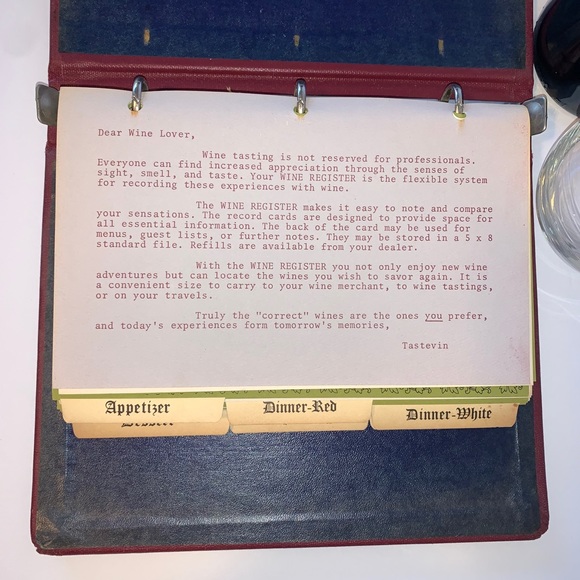 Dear Wine Lover,
Wine tasting is not reserved for professionals.
Everyone can find increased appreciation through the senses of
sight, smell, and taste. Your WINE REGISTER is the flexible system
for recording these experiences with wine.
The WINE REGISTER makes it easy to note and compare
your sensations. The record cards are designed to provide space for
all essential information. The back of the card may be used for
menus, guest lists, or further notes. They may be stored in a 5 x 8
standard file. Refills are available from your dealer.
With the WINE REGISTER you not only enjoy new wine
adventures but can locate the wines you wish to savor again. It is
a convenient size to carry to your wine merchant, to wine tastings,
or on your travels.
Truly the "correct" wines are the ones you prefer,
and today's experiences form tomorrow's memories,
Tastevin
Appetizer
Dinner-Red
Dinner-White
Dessert